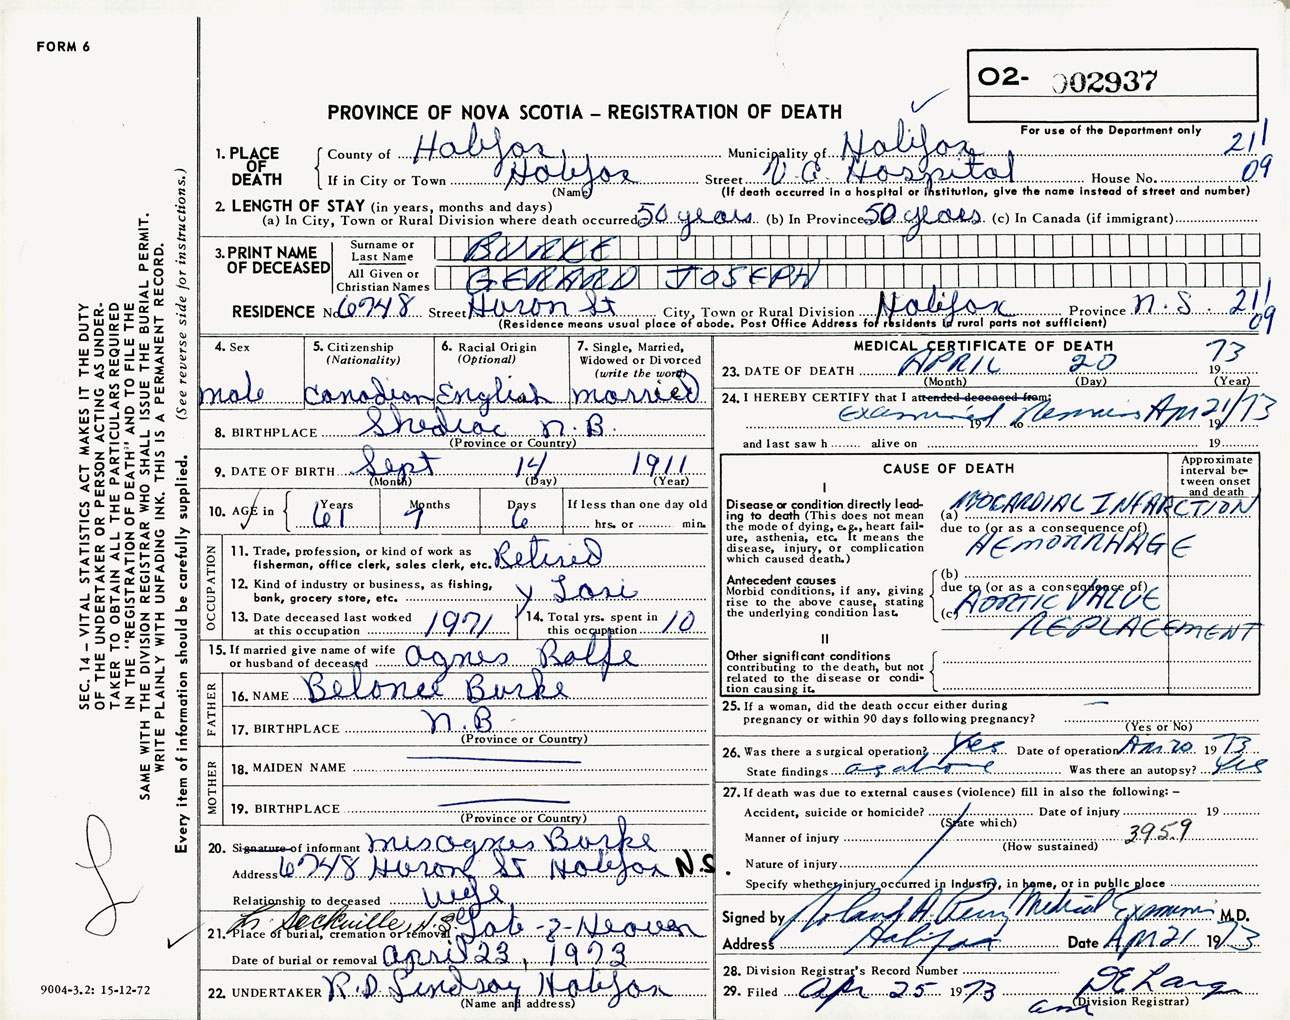 FORM 6
O2- 002937
For use of the Department only
PROVINCE OF NOVA SCOTIA – REGISTRATION OF DEATH
211
09
1. PLACE OF DEATH
County of Halifax Municipality of Halifax
If in City or Town Halifax Street V.G. Hospital House No.
(Name) (If death occurred in a hospital or institution, give the name instead of street and number)
2. LENGTH OF STAY (in years, months and days)
(a) In City, Town or Rural Division where death occurred 50 years (b) In Province 50 years (c) In Canada (if immigrant)
3. PRINT NAME OF DECEASED
Surname or Last Name BURKE
All Given or Christian Names GERARD JOSEPH
RESIDENCE No. 6748 Street Huron St City, Town or Rural Division Halifax Province N.S. 211
09
(Residence means usual place of abode. Post Office Address for residents in rural parts not sufficient)
4. Sex
male
5. Citizenship (Nationality)
Canadian
6. Racial Origin (Optional)
English
7. Single, Married, Widowed or Divorced (write the word)
married
8. BIRTHPLACE Shediac N.B.
(Province or Country)
9. DATE OF BIRTH Sept 14 1911
(Month) (Day) (Year)
10. AGE in Years Months Days If less than one day old
61 7 6 hrs. or min.
OCCUPATION
11. Trade, profession, or kind of work as fisherman, office clerk, sales clerk, etc. Retired
12. Kind of industry or business, as fishing, bank, grocery store, etc. Taxi
13. Date deceased last worked at this occupation 1971
14. Total yrs. spent in this occupation 10
15. If married give name of wife or husband of deceased Agnes Rolfe
FATHER
16. NAME Belonee Burke
17. BIRTHPLACE N.B.
(Province or Country)
MOTHER
18. MAIDEN NAME
19. BIRTHPLACE
(Province or Country)
20. Signature of informant Mrs Agnes Burke
Address 6748 Huron St Halifax N.S.
Relationship to deceased wife
Lr. Sackville, N.S.
21. Place of burial, cremation or removal Gate of Heaven
Date of burial or removal April 23, 1973
22. UNDERTAKER R.D. Lindsay Halifax
(Name and address)
MEDICAL CERTIFICATE OF DEATH
23. DATE OF DEATH APRIL 20 1973
(Month) (Day) (Year)
24. I HEREBY CERTIFY that I attended deceased from:
Examined Remains Apr 21/73
19 to 19
and last saw h alive on 19
CAUSE OF DEATH
Approximate interval between onset and death
I
Disease or condition directly leading to death (This does not mean the mode of dying, e.g., heart failure, asthenia, etc. It means the disease, injury, or complication which caused death.)
(a) MYOCARDIAL INFARCTION
due to (or as a consequence of)
HEMORRHAGE
Antecedent causes
Morbid conditions, if any, giving rise to the above cause, stating the underlying condition last.
(b)
due to (or as a consequence of)
(c) AORTIC VALVE
REPLACEMENT
II
Other significant conditions contributing to the death, but not related to the disease or condition causing it.
25. If a woman, did the death occur either during pregnancy or within 90 days following pregnancy? —
(Yes or No)
26. Was there a surgical operation? Yes Date of operation Apr 20 1973
State findings as above Was there an autopsy? Yes
27. If death was due to external causes (violence) fill in also the following: –
Accident, suicide or homicide? Date of injury 19
(State which)
Manner of injury 3959
(How sustained)
Nature of injury
Specify whether injury occurred in Industry, in home, or in public place
Signed by Roland A. Perry Medical Examiner M.D.
Address Halifax Date Apr 21 1973
28. Division Registrar's Record Number
29. Filed Apr 25 1973
(Division Registrar)
SEC. 14 – VITAL STATISTICS ACT MAKES IT THE DUTY
OF THE UNDERTAKER OR PERSON ACTING AS UNDER-
TAKER TO OBTAIN ALL THE PARTICULARS REQUIRED
IN THE "REGISTRATION OF DEATH" AND TO FILE THE
SAME WITH THE DIVISION REGISTRAR WHO SHALL ISSUE THE BURIAL PERMIT.
WRITE PLAINLY WITH UNFADING INK. THIS IS A PERMANENT RECORD.
Every item of information should be carefully supplied. (See reverse side for instructions.)
9004-3.2: 15-12-72